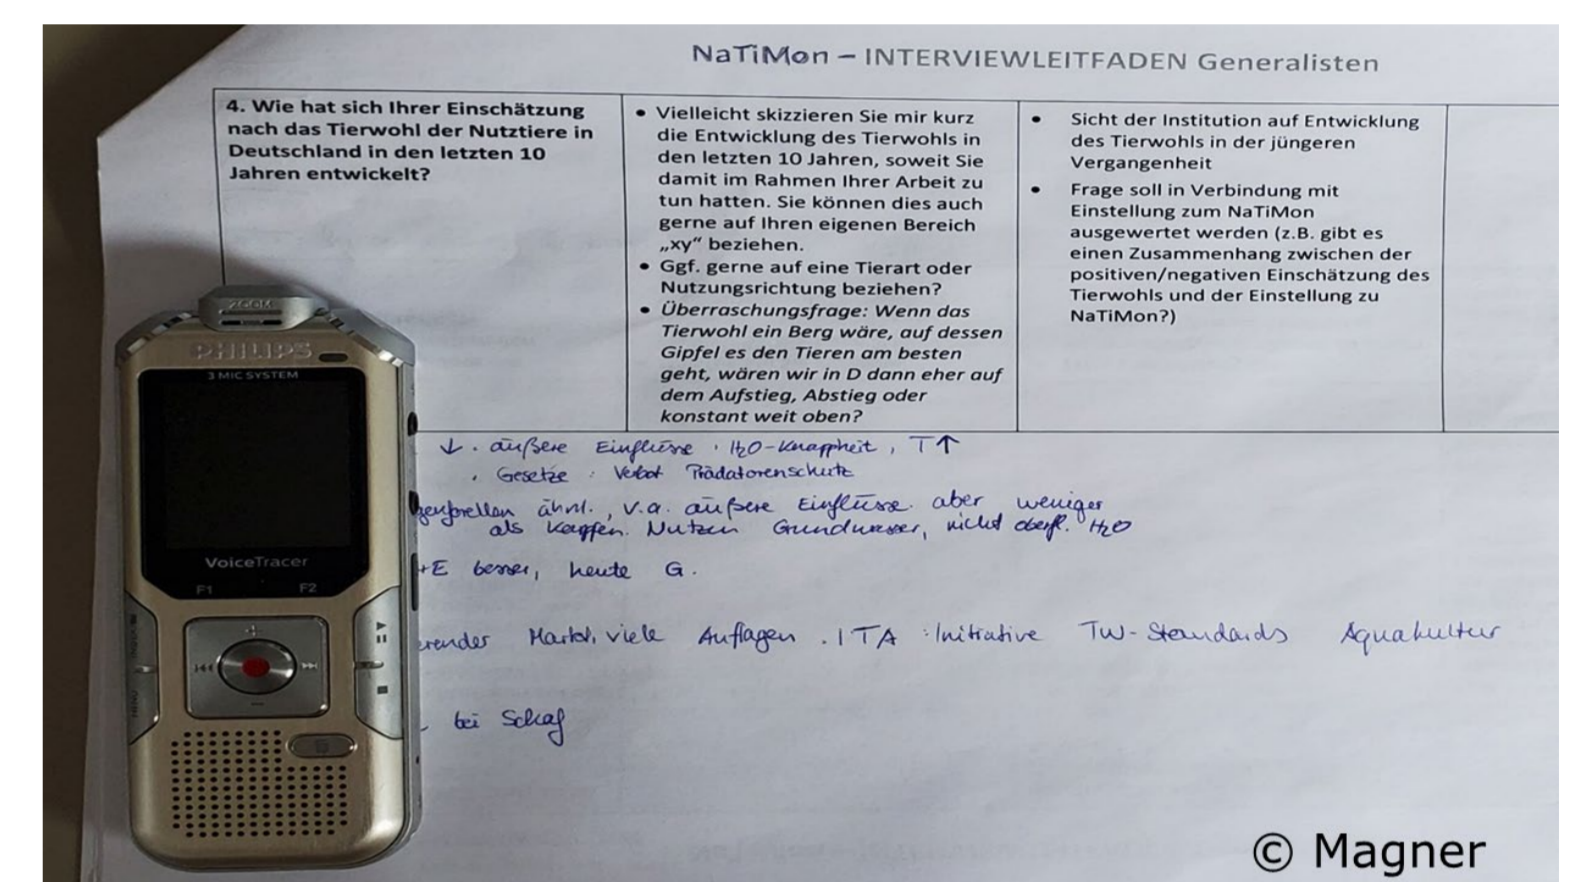 NaTiMon – INTERVIEWLEITFADEN Generalisten
4. Wie hat sich Ihrer Einschätzung
nach das Tierwohl der Nutztiere in
Deutschland in den letzten 10
Jahren entwickelt?
• Vielleicht skizzieren Sie mir kurz
die Entwicklung des Tierwohls in
den letzten 10 Jahren, soweit Sie
damit im Rahmen Ihrer Arbeit zu
tun hatten. Sie können dies auch
gerne auf Ihren eigenen Bereich
„xy“ beziehen.
• Ggf. gerne auf eine Tierart oder
Nutzungsrichtung beziehen?
• Überraschungsfrage: Wenn das
Tierwohl ein Berg wäre, auf dessen
Gipfel es den Tieren am besten
geht, wären wir in D dann eher auf
dem Aufstieg, Abstieg oder
konstant weit oben?
• Sicht der Institution auf Entwicklung
des Tierwohls in der jüngeren
Vergangenheit
• Frage soll in Verbindung mit
Einstellung zum NaTiMon
ausgewertet werden (z.B. gibt es
einen Zusammenhang zwischen der
positiven/negativen Einschätzung des
Tierwohls und der Einstellung zu
NaTiMon?)
↓ . äußere Einflüsse . H2O-Knappheit, T↑
. Gesetze : Verbot Prädatorenschutz
ähnl., v.a. äußere Einflüsse aber weniger
als Karpfen. Nutzen Grundwasser, nicht oberfl. H2O
+E besser, heute G.
erender Markt, viele Auflagen . ITA : Initiative TW-Standards Aquakultur
bei Schaf
ZOOM
PHILIPS
3 MIC SYSTEM
VoiceTracer
F1 F2
MENU
© Magner